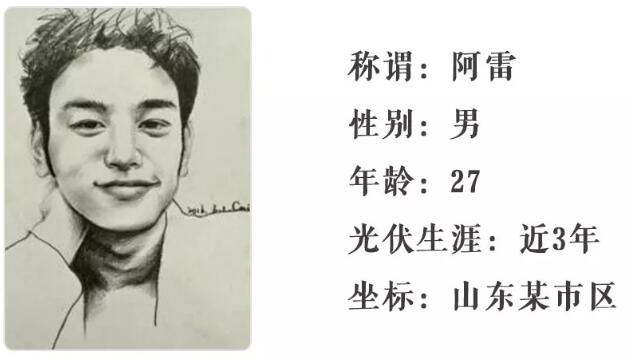 称谓：阿雷
性别：男
年龄：27
光伏生涯：近3年
坐标：山东某市区